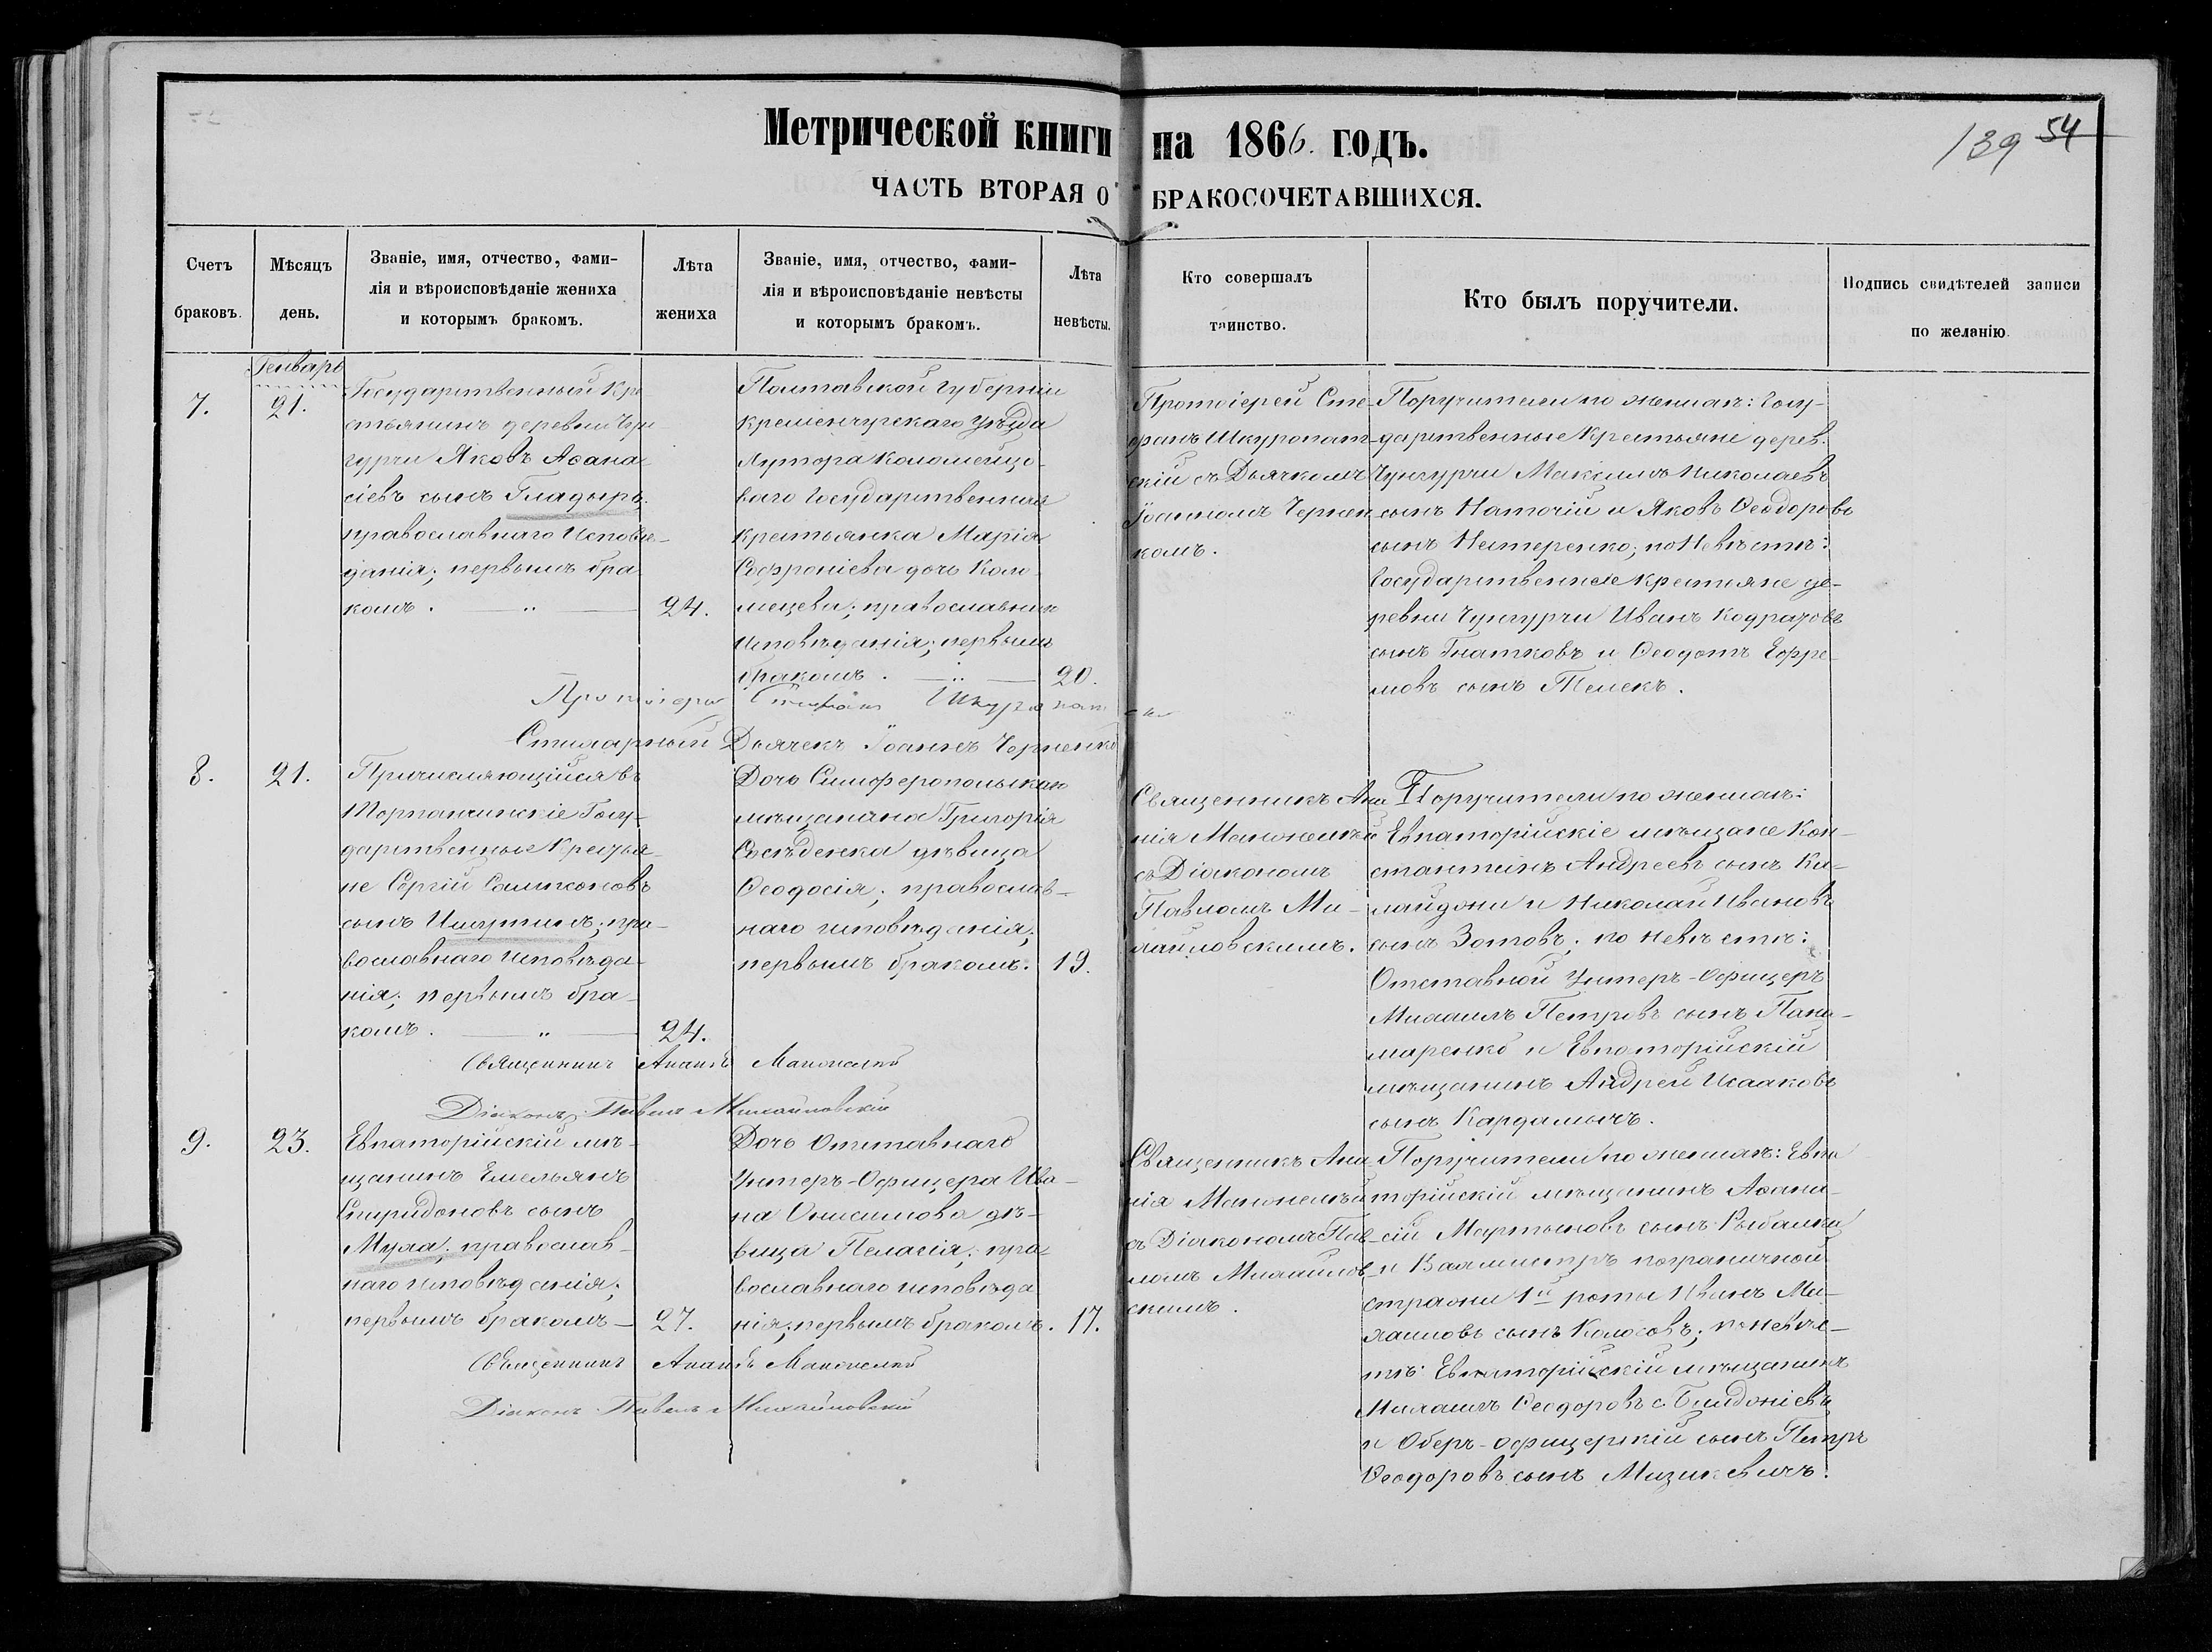 Метрической книги на 1866. годъ.
139 54
ЧАСТЬ ВТОРАЯ О БРАКОСОЧЕТАВШИХСЯ.
Счетъ браковъ.
Мѣсяцъ день.
Званіе, имя, отчество, фами-
лія и вѣроисповѣданіе жениха
и которымъ бракомъ.
Лѣта жениха
Званіе, имя, отчество, фами-
лія и вѣроисповѣданіе невѣсты
и которымъ бракомъ.
Лѣта невѣсты.
Кто совершалъ
таинство.
Кто былъ поручители.
Подпись свидѣтелей записи
по желанію.
Генварь
7.
21.
Государственный Кре
стьянинъ деревни Чун
гурчи Яковъ Аѳана
сіевъ сынъ Гладырь
православнаго исповѣ-
данія; первымъ бра
комъ.
24.
Полтавской губерніи
кременчугскаго уѣзда
хутора Коломейцо-
ваго государственная
крестьянка Марія
Софроніева дочь Коло
мецева; православнаго
исповѣданія; первымъ
бракомъ.
20.
Протоіерей Сте-
фанъ Шкуропат-
скій съ Дьячкомъ
Іоанномъ Чернен
комъ.
Поручители по женихѣ: Госу-
дарственные крестьяне дерев.
Чунгурчи Максимъ Николаевъ
сынъ Наточій и Яковъ Ѳеодоровъ
сынъ Нестеренко; по Невѣстѣ:
Государственные крестьяне де-
ревни Чунгурчи Иванъ Кодратовъ
сынъ Гнатковъ и Ѳеодотъ Ефре-
мовъ сынъ Телекъ.
Протоіерей Стефанъ Шкуропат
Дьячекъ Іоаннъ Черненко
8.
21.
Причисляющійся въ
Государ-
дарственные Крестья-
не Сергій Самсоновъ
сынъ Ишутинъ; пра-
вославнаго исповѣда-
нія; первымъ бра-
комъ.
24.
Дочь Симферопольскаго
мѣщанина Григорія
Сосѣденка дѣвица
Ѳеодосія; православ-
наго исповѣданія;
первымъ бракомъ.
19.
Священникъ Ана
нія
съ Діакономъ
Павломъ Ми-
хайловскимъ.
Поручители по женихѣ:
Евпаторійскіе мѣщане Кон-
стантинъ Андреевъ сынъ Ка-
лайджи и Николай Ивановъ
сынъ Зотовъ; по невѣстѣ:
Отставной Унтеръ-Офицеръ
Михаилъ Петровъ сынъ Пана-
маренко и Евпаторійскій
мѣщанинъ Андрей Исааковъ
сынъ Кардамычъ.
Священникъ Ананія
Діаконъ Павелъ Михайловскій
9.
23.
Евпаторійскій мѣ-
щанинъ Емельянъ
Спиридоновъ сынъ
Муха; православ-
наго исповѣданія;
первымъ бракомъ
27.
Дочь отставнаго
Унтеръ-Офицера Ива-
на Онисимова дѣ-
вица Пелагія; пра-
вославнаго исповѣда
нія; первымъ бракомъ.
17.
Священникъ Ана
нія
съ Діакономъ Пав-
ломъ Михайлов-
скимъ.
Поручители по женихѣ: Евпа
торійскій мѣщанинъ Аѳана-
сій Мартыновъ сынъ Рыбалка
и Вахмистръ пограничной
стражи 1й роты Иванъ Ми-
хаиловъ сынъ Колосовъ; по невѣс-
тѣ: Евпаторійскій мѣщанинъ
Михаилъ Ѳеодоровъ с.
и Оберъ-офицерскій сынъ Петръ
Ѳеодоровъ сынъ Мизикевичъ.
Священникъ Ананія
Діаконъ Павелъ Михайловскій